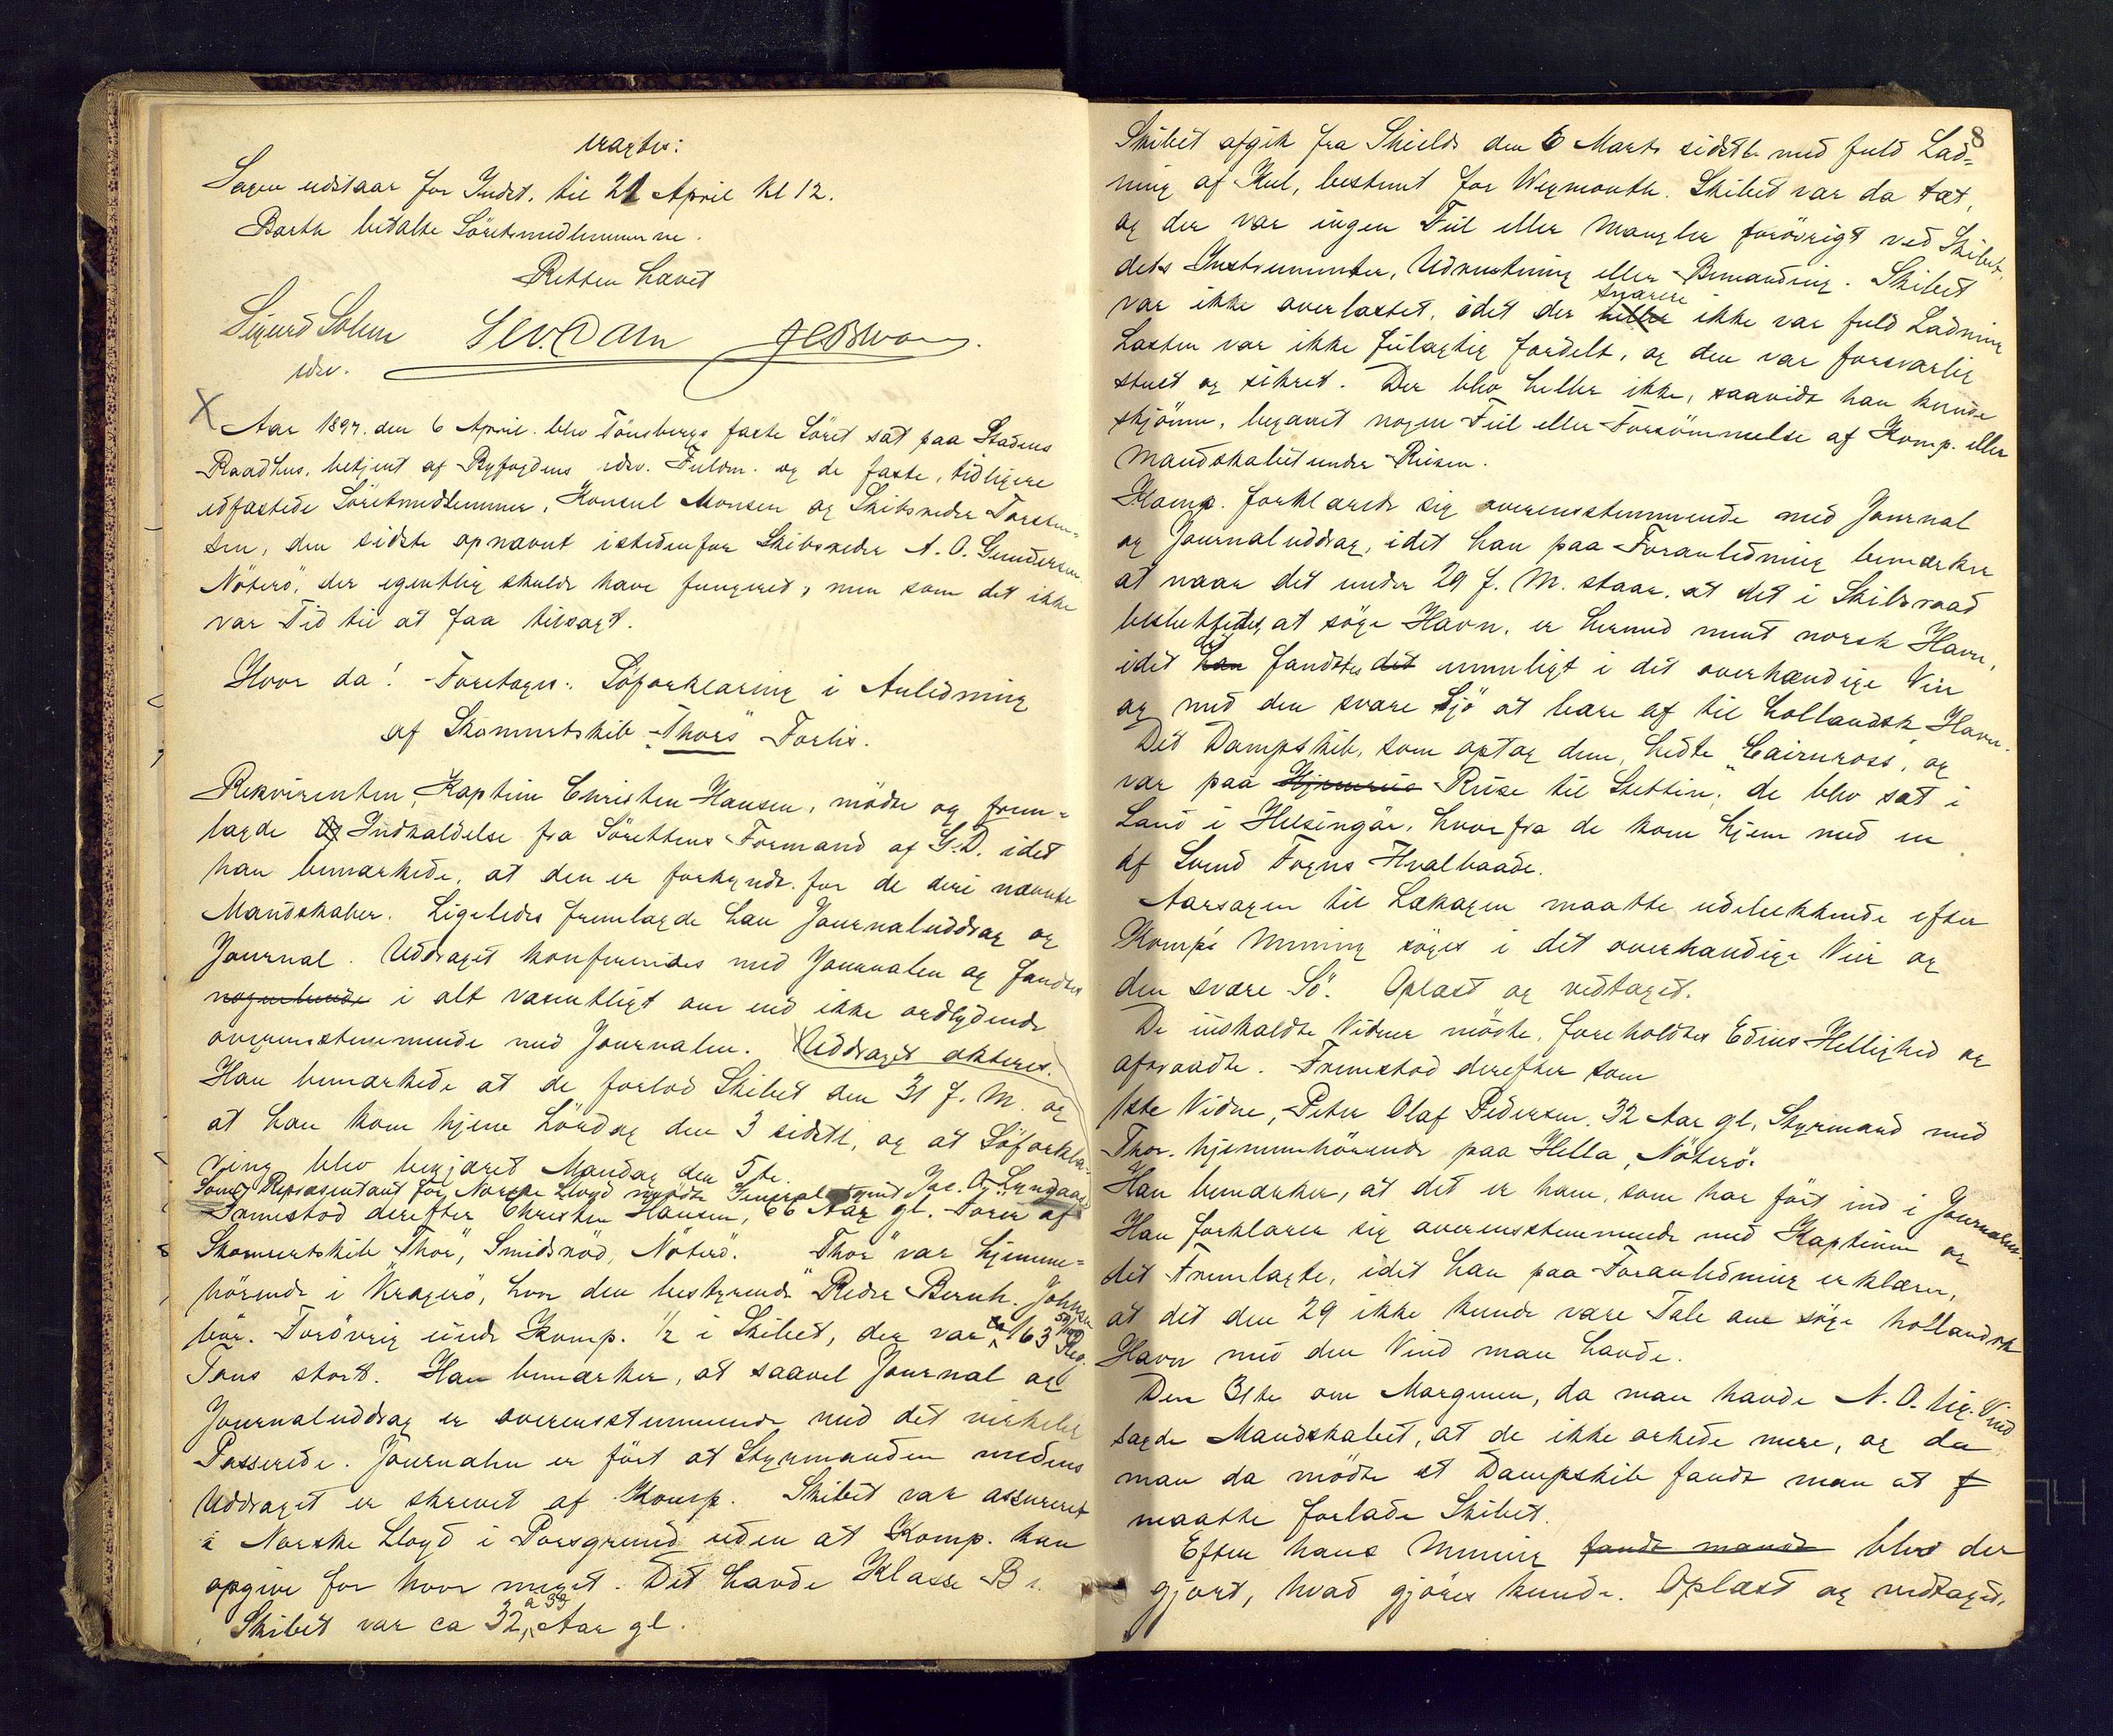 eragtes:
Sagen udstaar for Indst. til 21 April kl 12.
Barth betalte Söretsmedlemmerne.
Retten hævet
Sigurd Solem
edsv.
X Aar 1897. den 6 April. blev Tönsbergs faste Söret sat paa Stadens
Raadhus, betjent af Byfogdens edsv. Fuldm. og de faste, tidligere
edfæstede Söretsmedlemmer, Konsul Monsen og Skibsreder Torsten-
sen, den sidste opnævnt istedenfor Skibsreder A. O. Gundersen
Nöterö, der egentlig skulde have fungeret, men som det ikke
var Tid til at faa tilsagt.
Hvor da! Foretoges: Söforklaring i Anledning
af Skonnertskib "Thors" Forlis.
Rekvirenten, Kaptein Christen Hansen, mödte og frem-
lagde Indkaldelse fra Sörettens Formand af G.D. idet
han bemærkede, at den er forkyndt for de deri nævnte
Mandskaber. Ligeledes fremlagde han Journaluddrag og
Journal. Uddraget konfereredes med Journalen og fandtes
nogenlunde i alt væsentligt om end ikke ordlydende
overensstemmende med Journalen. Uddraget akteres.
Han bemærkede at de forlod Skibet den 31 f. M. og
at han kom hjem Lördag den 3 sidstl. og at Söforkla-
ring blev begjæret Mandag den 5te.
Som Repræsentant for Norske Lloyd mödte Generalagent Joc. A. Lyngaas
Fremstod derefter Christen Hansen, 66 Aar gl. Förer af
Skonnertskib "Thor", Smidsröd, Nöterö. "Thor" var hjemme-
hörende i Kragerö, hvor den bestyrende Reder Bernh. Johnsen
bor. Forövrig eiede Komp. 1/2 i Skibet, der var 163 Reg.
Tons stort. Han bemærker, at saavel Journal og
Journaluddrag er overensstemmende med det virkelig
Passerede. Journalen er fört af Styrmanden medens
Uddraget er skrevet af Komp. Skibet var assureret
i Norske Lloyd i Porsgrund uden at Komp. kan
opgive for hvor meget. Det havde Klasse B 1.
Skibet var ca 32 a 33 Aar gl.
8
Skibet afgik fra Shields den 6 Marts sidstl. med fuld Lad-
ning af Kul, bestemt for Weymouth. Skibet var da tæt,
og der var ingen Feil eller Mangler forövrigt ved Skibet,
dets Instrumenter, Udrustning eller Bemanding. Skibet
var ikke overlastet, idet der heller snarere ikke var fuld Ladning
Lasten var ikke feilagtig fordelt, og den var forsvarlig
stuet og sikret. Der blev heller ikke, saavidt han kunde
skjönne, begaaet nogen Feil eller Forsömmelse af Komp. eller
Mandskabet under Reisen.
Komp. forklarede sig overensstemmende med Journal
og Journaluddrag, idet han paa Foranledning bemærker
at naar det under 29 f. M. staar, at det i Skibsraad
besluttedes at söge Havn, er hermed ment norsk Havn,
idet han fandtes det umuligt i det overhændige Veir
og med den svære Sjö at bære af til hollandsk Havn.
Det Dampskib, som optog dem, hedte "Cairnross", og
var paa Hjemreis Reise til Stettin; de blev sat i
Land i Helsingör, hvorfra de kom hjem med en
af Svend Foyns Hvalbaade.
Aarsagen til Lækagen maatte udelukkende efter
Komp's Mening söges i det overhændige Veir og
den svære Sö. Oplæst og vedtaget.
De indkaldte Vidner mödte, foreholdtes Edens Hellighed og
afraadte. Fremstod derefter som
1ste Vidne, Peter Olaf Pedersen, 32 Aar gl, Styrmand med
Thor, hjemmehörende paa Hella, Nöterö.
Han bemærker, at det er ham, som har fört ind i Journalen.
Han forklarer sig overensstemmende med Kapteinen og
det Fremlagte, idet han paa Foranledning erklærer,
at det den 29 ikke kunde være Tale om söge hollandsk
Havn med den Vind man havde.
Den 31te om Morgenen, da man havde N. O. lig Vind
sagde Mandskabet, at de ikke orkede mere, og da
man da mödte et Dampskib fandt man at f
maatte forlade Skibet.
Efter hans Mening fandt mande blev der
gjort, hvad gjöres kunde. Oplæst og vedtaget.